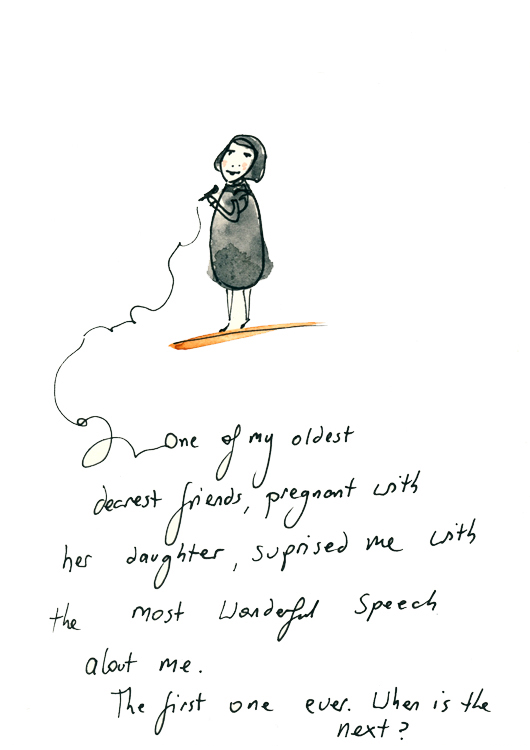 One of my oldest
dearest friends, pregnant with
her daughter, suprised me with
the most wonderful speech
about me.
The first one ever. When is the
next?